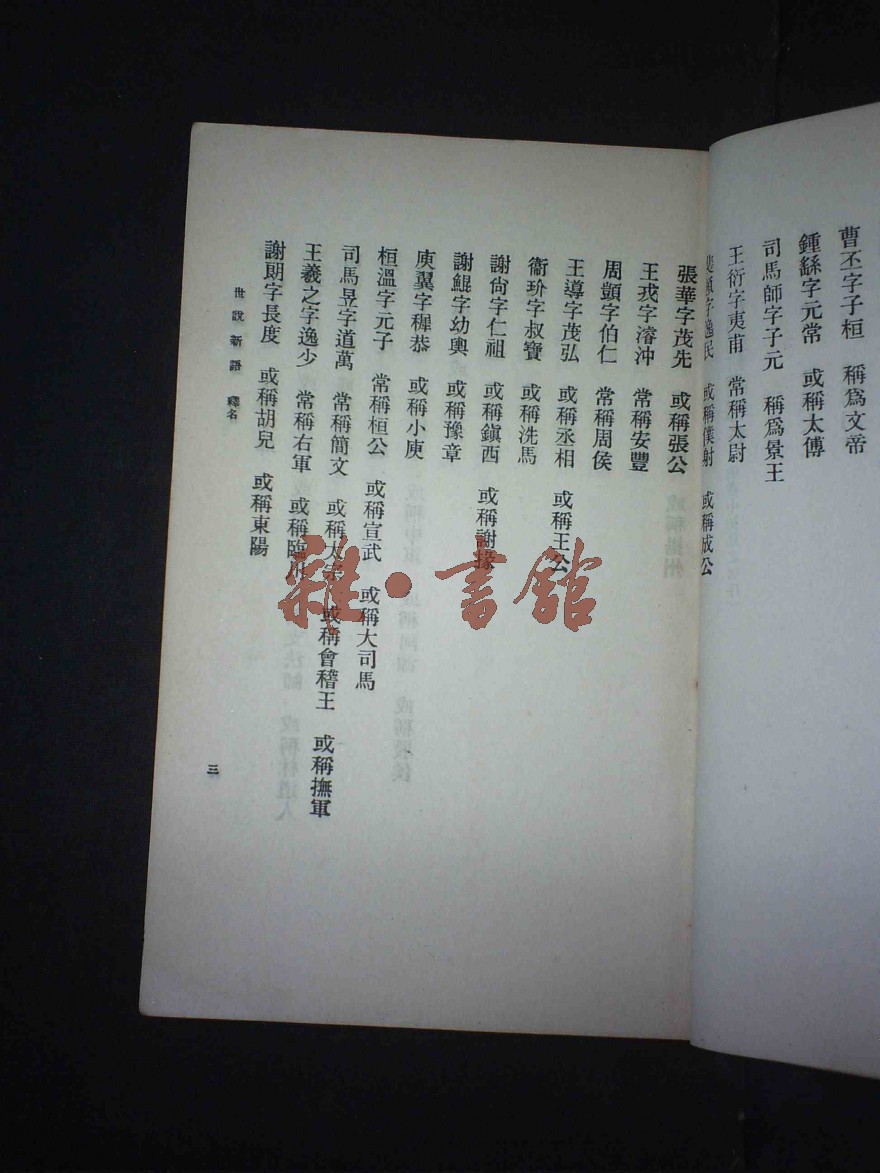 曹丕字子桓　稱爲文帝
鍾繇字元常　或稱太傅
司馬師字子元　稱爲景王
王衍字夷甫　常稱太尉
頠字逸民　或稱僕射　或稱成公
張華字茂先　或稱張公
王戎字濬沖　常稱安豐
周顗字伯仁　常稱周侯
王導字茂弘　或稱丞相　或稱王公
衞玠字叔寶　或稱洗馬
謝尙字仁祖　或稱鎭西　或稱謝掾
謝鯤字幼輿　或稱豫章
庾翼字穉恭　或稱小庾
桓溫字元子　常稱桓公　或稱宣武　或稱大司馬
司馬昱字道萬　常稱簡文　或稱太宗　或稱會稽王　或稱撫軍
王羲之字逸少　常稱右軍　或稱臨川
謝朗字長度　或稱胡兒　或稱東陽
世說新語　釋名
三
雜·書館